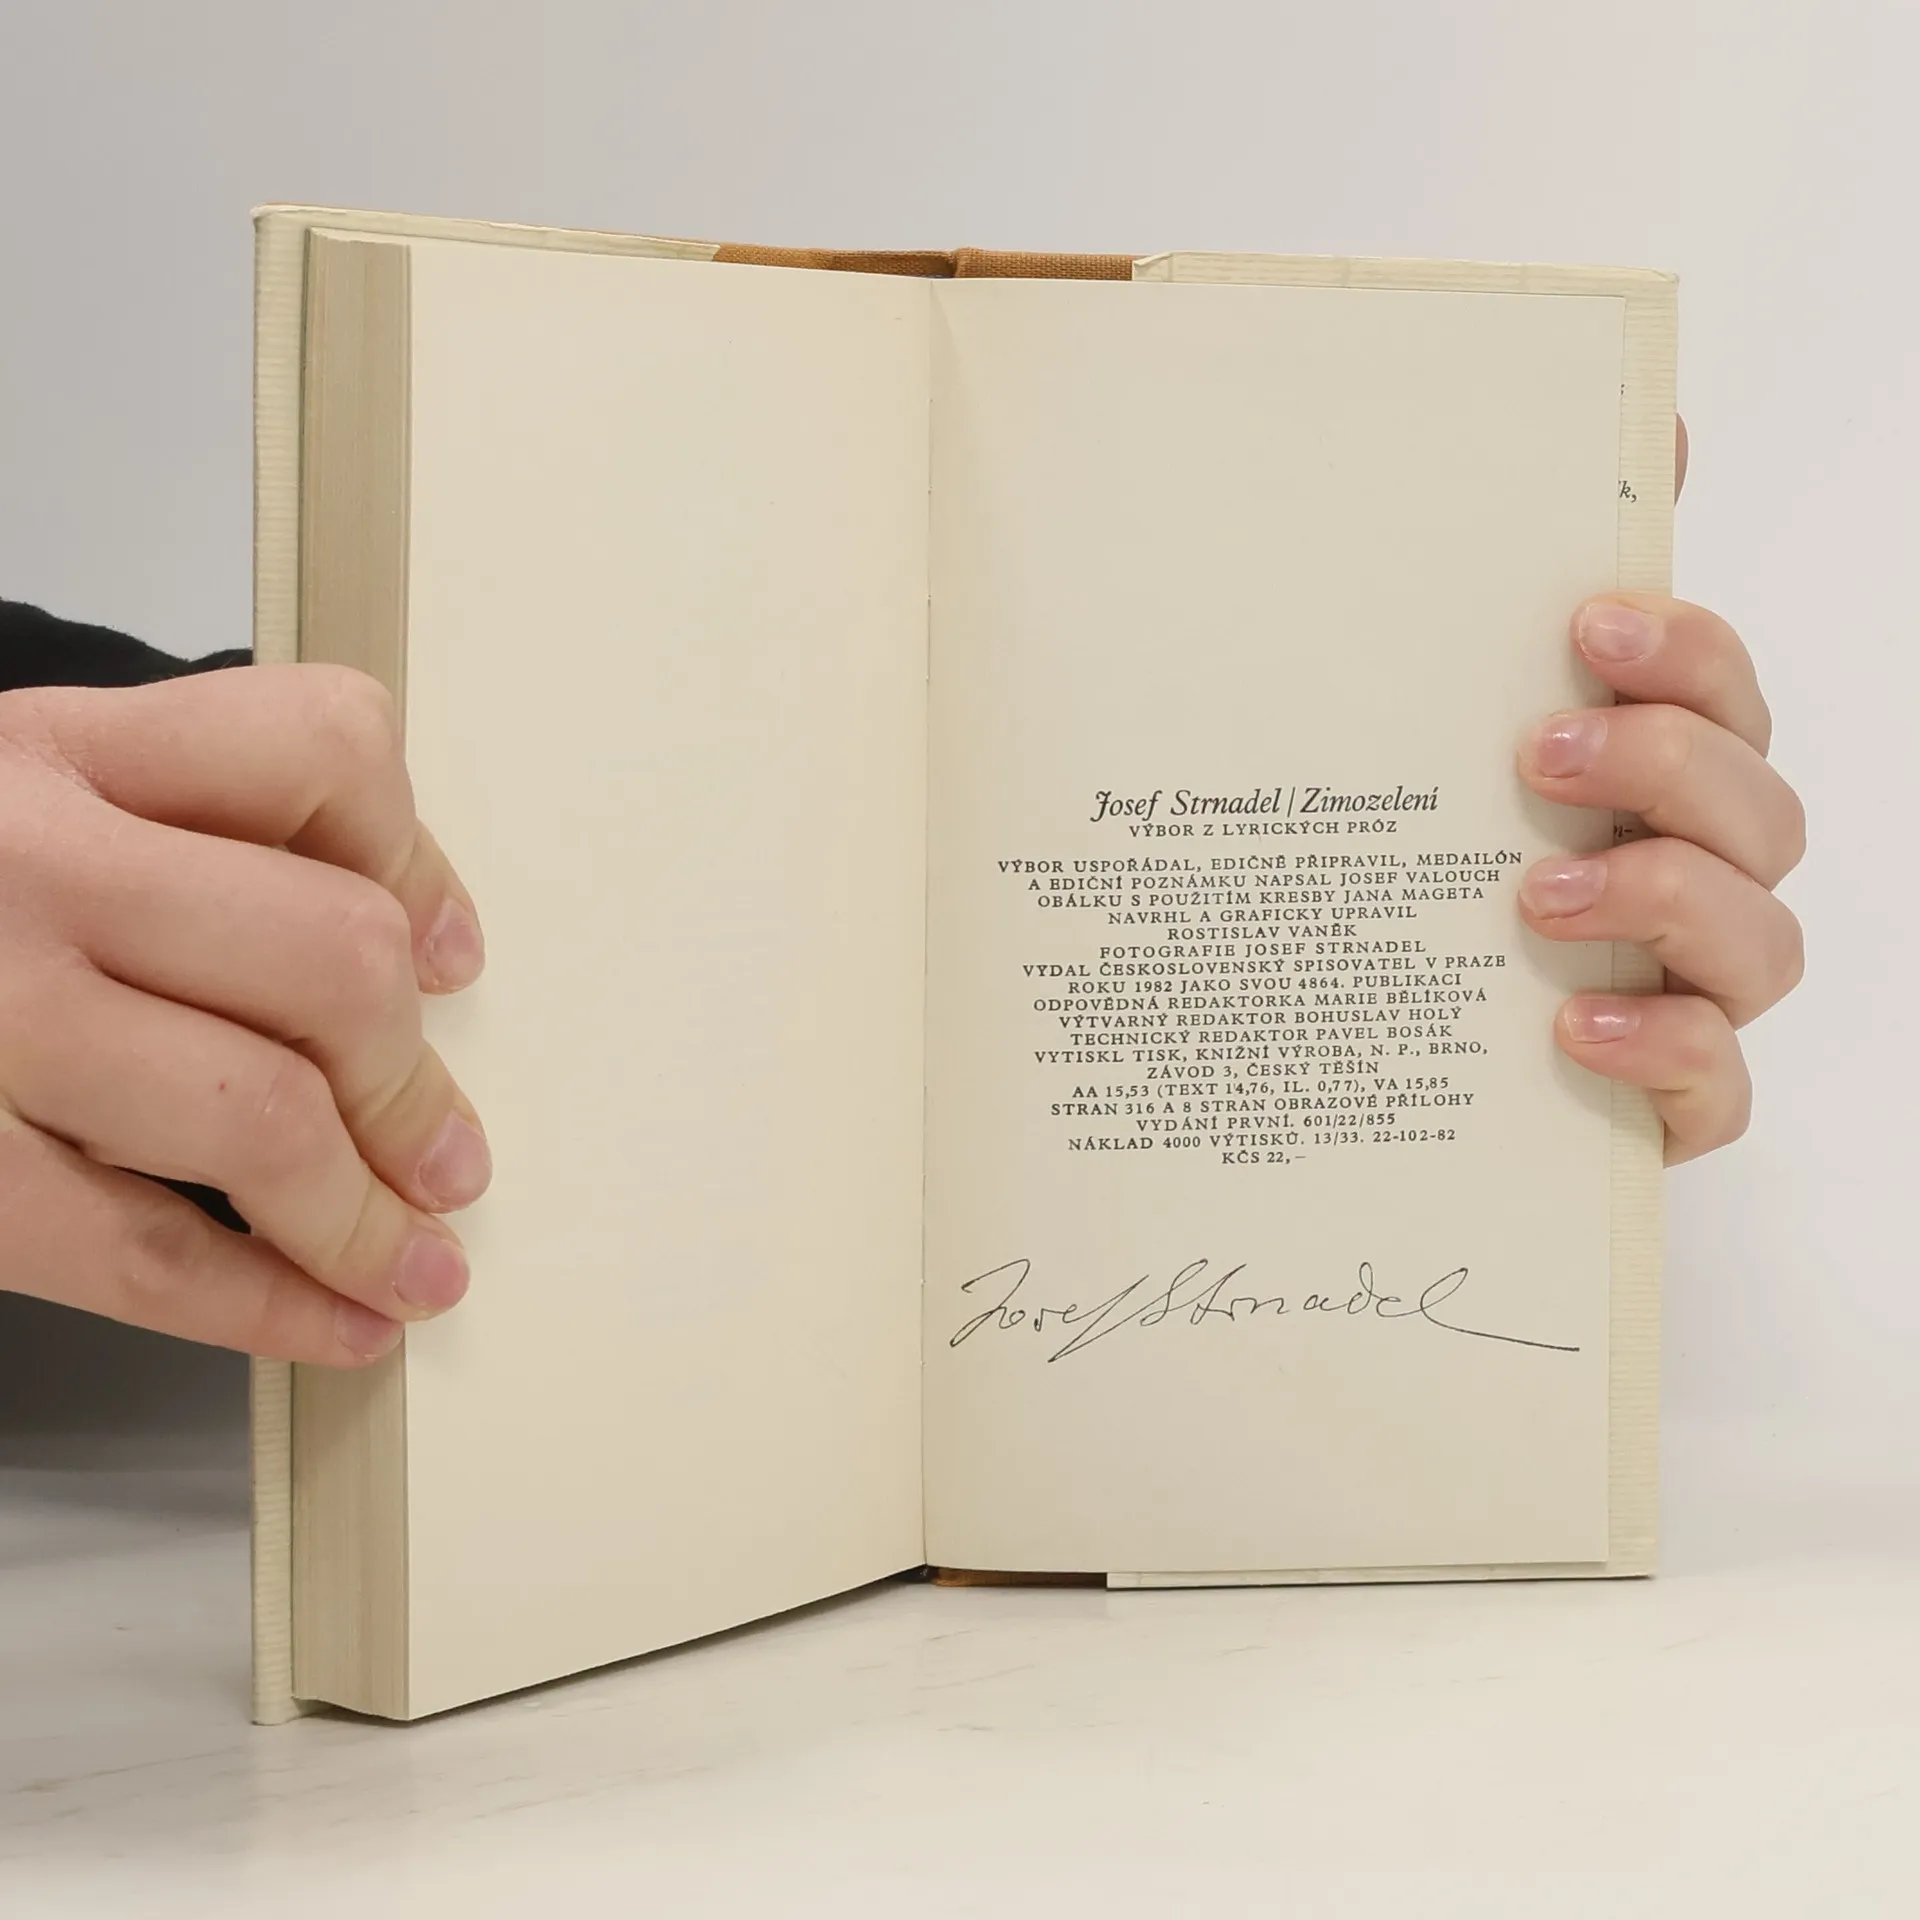 Josef Strnadel | Zimozelení
VÝBOR Z LYRICKÝCH PRÓZ
VÝBOR USPOŘÁDAL, EDIČNĚ PŘIPRAVIL, MEDAILÓN
A EDIČNÍ POZNÁMKU NAPSAL JOSEF VALOUCH
OBÁLKU S POUŽITÍM KRESBY JANA MAGETA
NAVRHL A GRAFICKY UPRAVIL
ROSTISLAV VANĚK
FOTOGRAFIE JOSEF STRNADEL
VYDAL ČESKOSLOVENSKÝ SPISOVATEL V PRAZE
ROKU 1982 JAKO SVOU 4864. PUBLIKACI
ODPOVĚDNÁ REDAKTORKA MARIE BĚLÍKOVÁ
VÝTVARNÝ REDAKTOR BOHUSLAV HOLÝ
TECHNICKÝ REDAKTOR PAVEL BOSÁK
VYTISKL TISK, KNIŽNÍ VÝROBA, N. P., BRNO,
ZÁVOD 3, ČESKÝ TĚŠÍN
AA 15,53 (TEXT 14,76, IL. 0,77), VA 15,85
STRAN 316 A 8 STRAN OBRAZOVÉ PŘÍLOHY
VYDÁNÍ PRVNÍ. 601/22/855
NÁKLAD 4000 VÝTISKŮ. 13/33. 22-102-82
KČS 22,–
Josef Strnadel